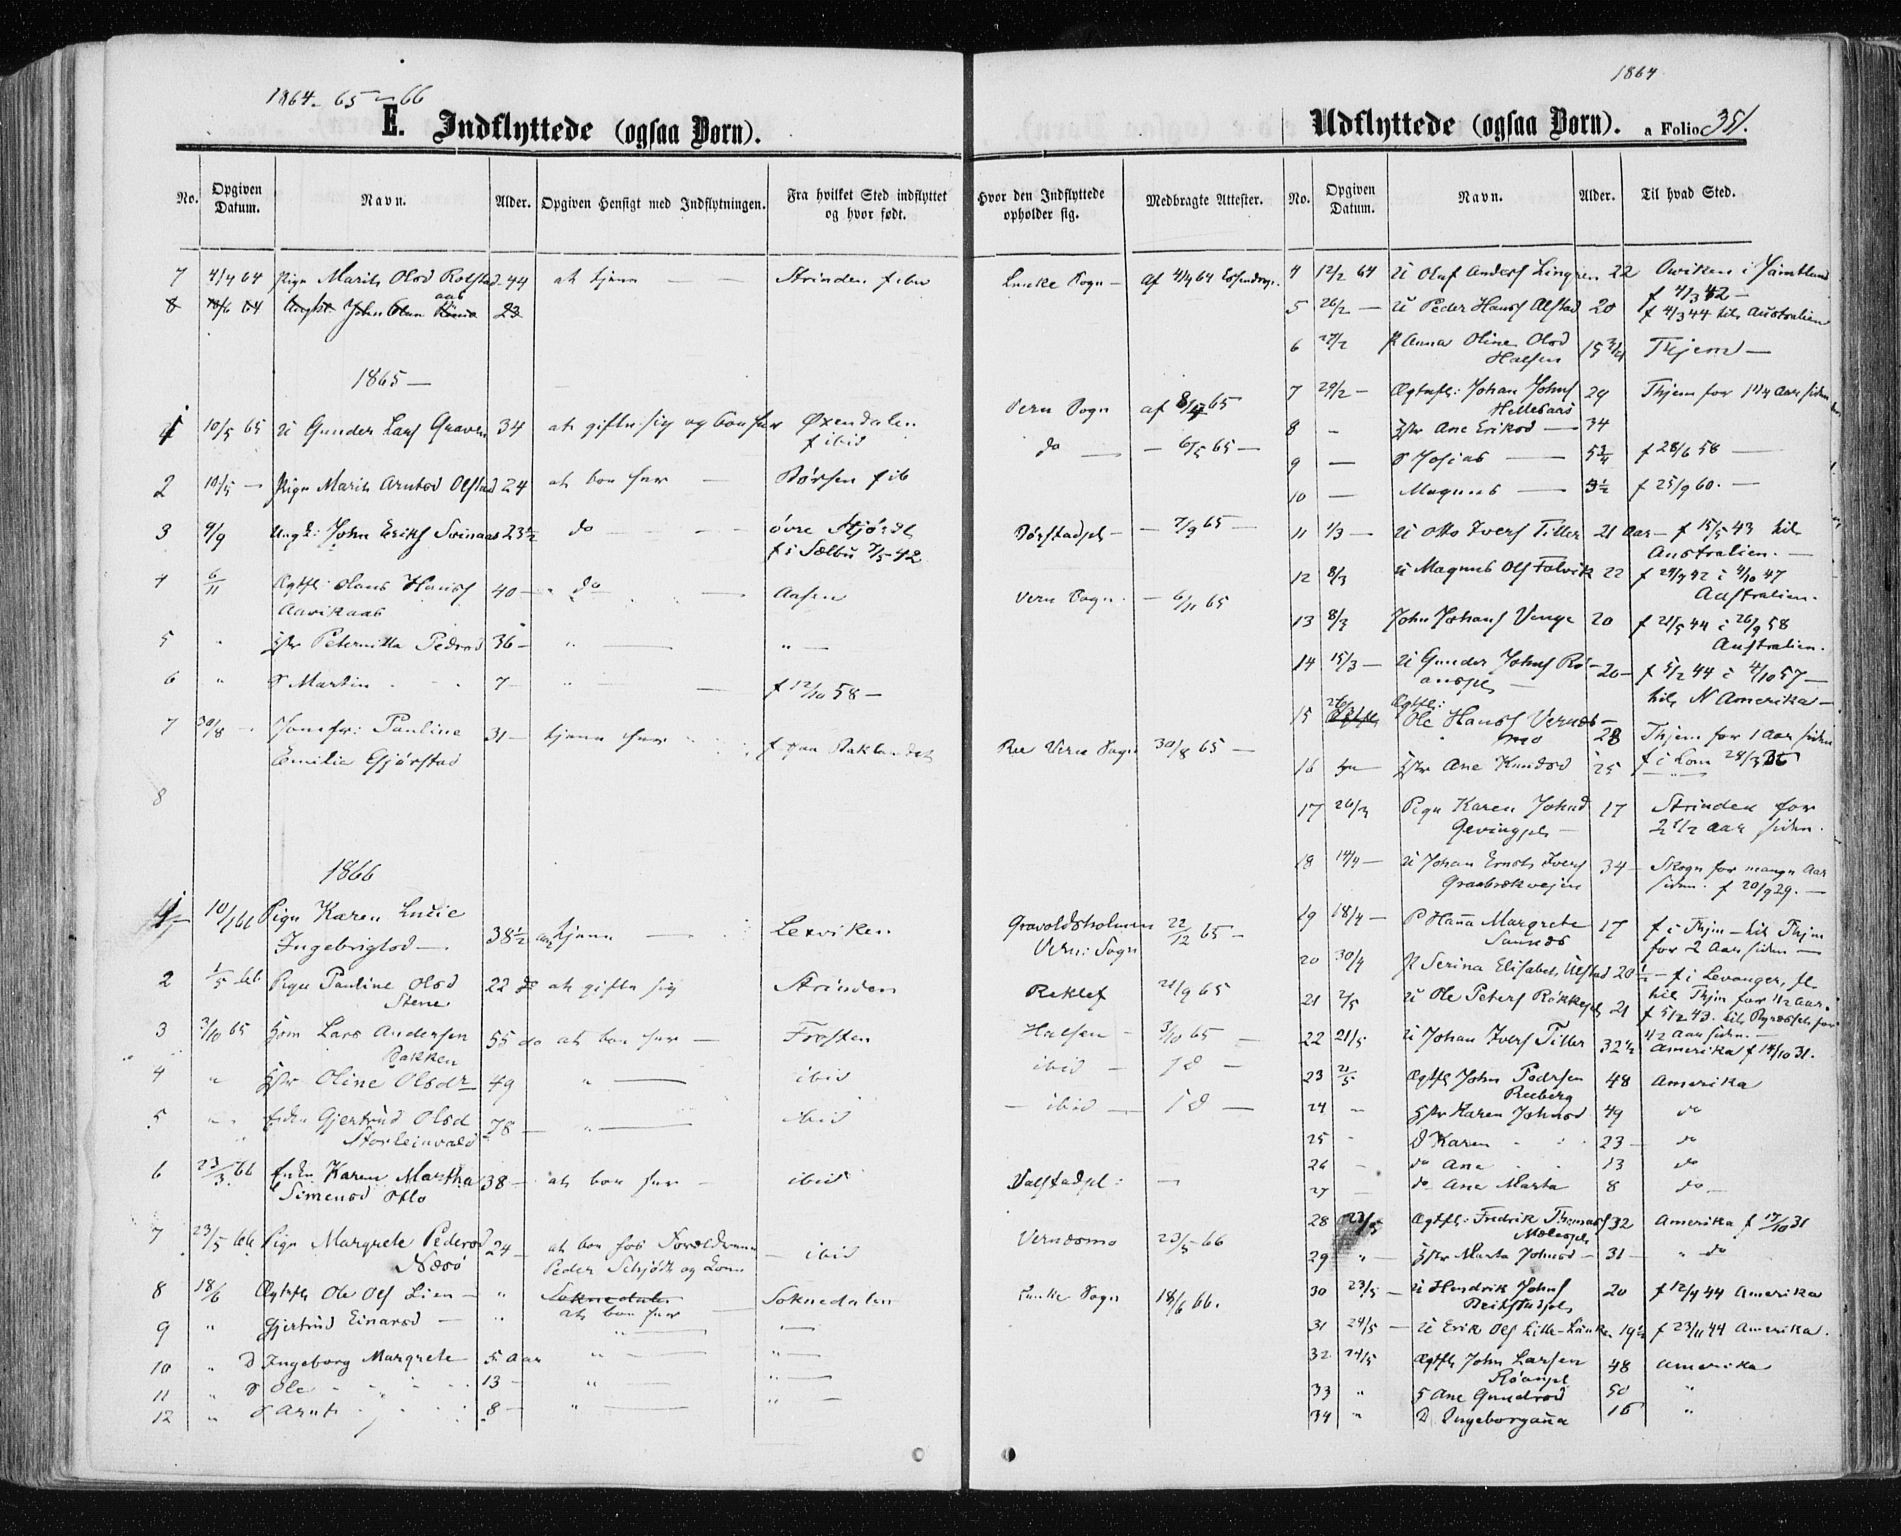 1864 - 65 - 66
E. Indflyttede (ogsaa Børn).
No.
Opgiven Datum.
Navn.
Alder.
Opgiven Hensigt med Indflytningen.
Fra hvilket Sted indflyttet og hvor født.
Hvor den Indflyttede opholder sig.
Medbragte Attester.
7 4/4 64 Pige Marit Olsd 44 at tjene Strinden f ibd Lanke Sogn af 4/4 64
8 10/6 64 John Olsen 23
1865 —
1 10/5 65 U Gunder Lars Graven 34 at gifte sig og boe her Øxendalen f ibid Vern Sogn af 8/4 65
2 10/5 — Pige Marit Arntsd Olstad 24 at boe her — Børsen f ib do — 6/5 65 —
3 9/9 Ungk: John Eriks Svinaas 23 1/2 do — øvre Stjørd: f i Sælbu 7/5 42 — 7/9 65 —
4 6/11 Ægtfl: Hans 40 — do — Aasen Vern Sogn — 6/11 65
5 " Hstr Peternilla Pedersd 36 — " — " —
6 " S Martin 7 — " — f 12/10 58 —
7 30/8 — Jomfr: Pauline Emilie Gjørstad 31 — tjene her f paa Baklandet Ree Vern Sogn 30/8 65 —
8
1866
1 10/1 66 Pige Karen Lucie Ingebrigtsd — 38 1/2 tjene — Lexviken Gravoldsholmen Vern: Sogn 22/12 65 —
2 1/5 66 Pige Pauline Olsd Stene 22 do at gifte sig Strinden 21/9 65
3 3/10 65 Hsm Lars Andersen Bakken 55 do at boe her — Frosten Halsen — 3/10 65 —
4 " Hstr Oline Olsdr 49 " — ibid ibid — 1d —
5 " Enke Gjertrud Olsd 78 — " — ibid — ibid — 1d —
6 23/3 66 Enke Karen Martha Simensd 38 — at boe her — ibid Valstadpl: —
7 23/5 66 Pige Margrete Pedersd Næsø 24 — at boe hos Forældrene Peder Schjødt og Kone — ibid Vernæsmo 23/5 66
8 18/6 Ægtefl Ole Ols Lien — " Soknedalen at boe her — Soknedalen Lanke Sogn 18/6 66.
9 " Gjertrud Einarsd — " " — " —
10 " D Ingeborg Margrete 5 Aar " — " —
11 " S Ole 13 — " — " —
12 " S Arnt 8 — " — " —
1864
Udflyttede (ogsaa Børn). a Folio 351.
No.
Opgiven Datum.
Navn.
Alder.
Til hvad Sted.
4 12/2 64 U Olaf Anders Lingren 22 Oviken i Jämtland f 4/3 42 —
5 26/2 — U Peder Hans Alstad 20 f 4/3 44 til Australien
6 27/2 P Anna Oline Olsd Halsen 15 3/4 Thjem —
7 29/2 — Ægtefl: Johan Johns Hellesaas 29 Thjem for 1 1/4 Aar siden
8 — Hstr Ane Eriksd — 34
9 — S Josias — 5 3/4 f 28/6 58 —
10 — Magnus — 3 1/2 f 25/9 60. —
11 1/3 — U Otto Ivers Tiller 21 Aar — f 15/5 43 til Australien. —
12 8/3 U Magnus Ols 22 f 29/7 42 i 4/10 47 Australien.
13 8/3 John Johans Venge 20 f 21/5 44 i 26/9 58 Australien.
14 15/3 — U Gunder Johns Røaaspl 20 — f 5/2 44 i 4/10 57 — til N Amerika —
15 26/3 Ægtfl: Ole Hans Vernæsmo 28 Thjem for 1 Aar siden
16 Hstr Ane Knudsd 25 f i Lom
17 26/3 Pige Karen Johnsd Gevingpl — 17 Strinden for 2 1/2 Aar siden.
18 14/4 — U Johan Ernst Ivers Graabrækvejen 34 — Skogn for mange Aar siden. f 20/9 29. —
19 18/4 — P Hanna Margrete Sannes 17 f i Thjm — til Thjm for 2 Aar siden —
20 30/4 P Serina Elisabet Ulstad 20 1/2 — f i Levanger, fl. til Thjm for 1/2 Aar.
21 2/5 U Ole Peters Røkkepl 21 f 5/2 43. for 1/2 Aar siden. —
22 21/5 U Johan Ivers Tiller 32 1/2 Amerika f 14/10 31.
23 21/5 Ægtfl John Pedersen Reeberg 48 Amerika
24 — Hstr Karen Johnsd 49 do
25 — D Karen 23 — do
26 — do Ane 13 do
27 — do Ane Marta 8 do —
28 23/5 Ægtfl: Fredrik Thomas 32 Amerika f 17/10 31
29 " — Hstr Marta Johnsd — 31 — " do
30 23/5 — U Hendrik Johns 20 f 12/4 44 Amerika
31 24/5 — U Erik Ols Lille-Lanke 19 1/2 f 23/11 44 Amerika.
32 24/5 Ægtfl John Larsen Røaapl 48 Amerika
33 " H Ane Gundersd 50 "
34 " D Ingeborganna 16 "